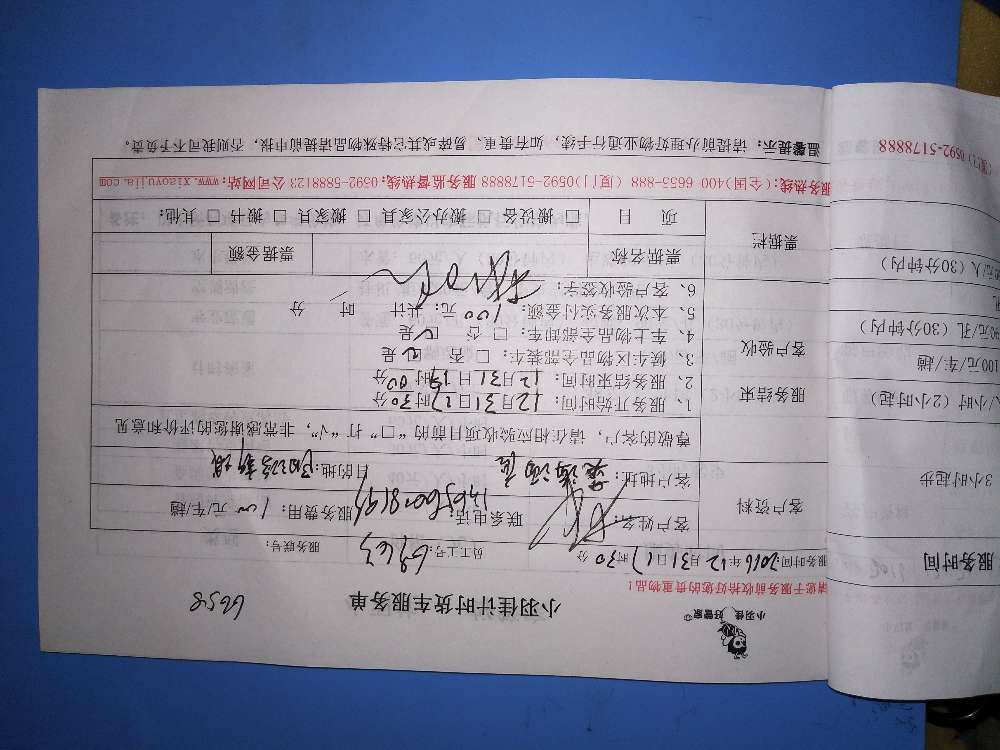 小羽佳 好管家®
小羽佳计时货车服务单
6658
请您于服务前收拾好您的贵重物品!
服务时间:2016年12月31日17时30分 员工工号: 6963 服务账号:
客户资料
客户姓名: 联系电话: 服务费用: 100元/车/趟
客户地址: 目的地:
尊敬的客户,请在相应验收项目前的“□”打“√”,非常感谢您的评价和意见
服务结束
1、服务开始时间: 12月31日17时30分
2、服务结束时间: 12月31日19时00分
客户验收
3、候车区物品全部装车: □ 否 ☑ 是
4、车上物品全部卸车: □ 否 ☑ 是
5、本次服务实付金额: 100 元: 共计 时 分
6、客户验收签字:
票据栏
票据名称 票据金额
项 目 □ 搬设备 □ 搬办公家具 □ 搬家具 □ 搬书 □ 其他:
服务热线:(全国)400-6655-888 (厦门)0592-5178888 服务监督热线: 0592-5888123 公司网站: www.xiaoyujia.com
温馨提示: 请提前办理好物业通行手续, 如有贵重、易碎或其它特殊物品请提前申报, 否则我司不予负责。
服务时间
3小时起步
/小时(2小时起)
100元/车/趟
90元/孔(30分钟内)
元/人(30分钟内)
(厦门)0592-5178888